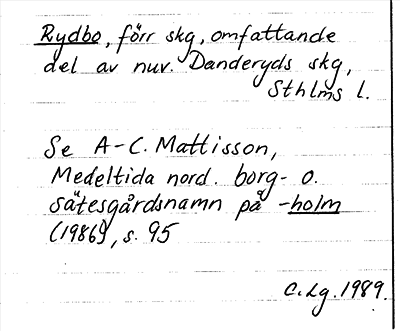 Rydbo, förr skg, omfattande
del av nuv. Danderyds skg,
Sthlms l.
Se A-C. Mattisson,
Medeltida nord. borg- o.
sätesgårdsnamn på -holm
(1986), s. 95
C.Lg. 1989.